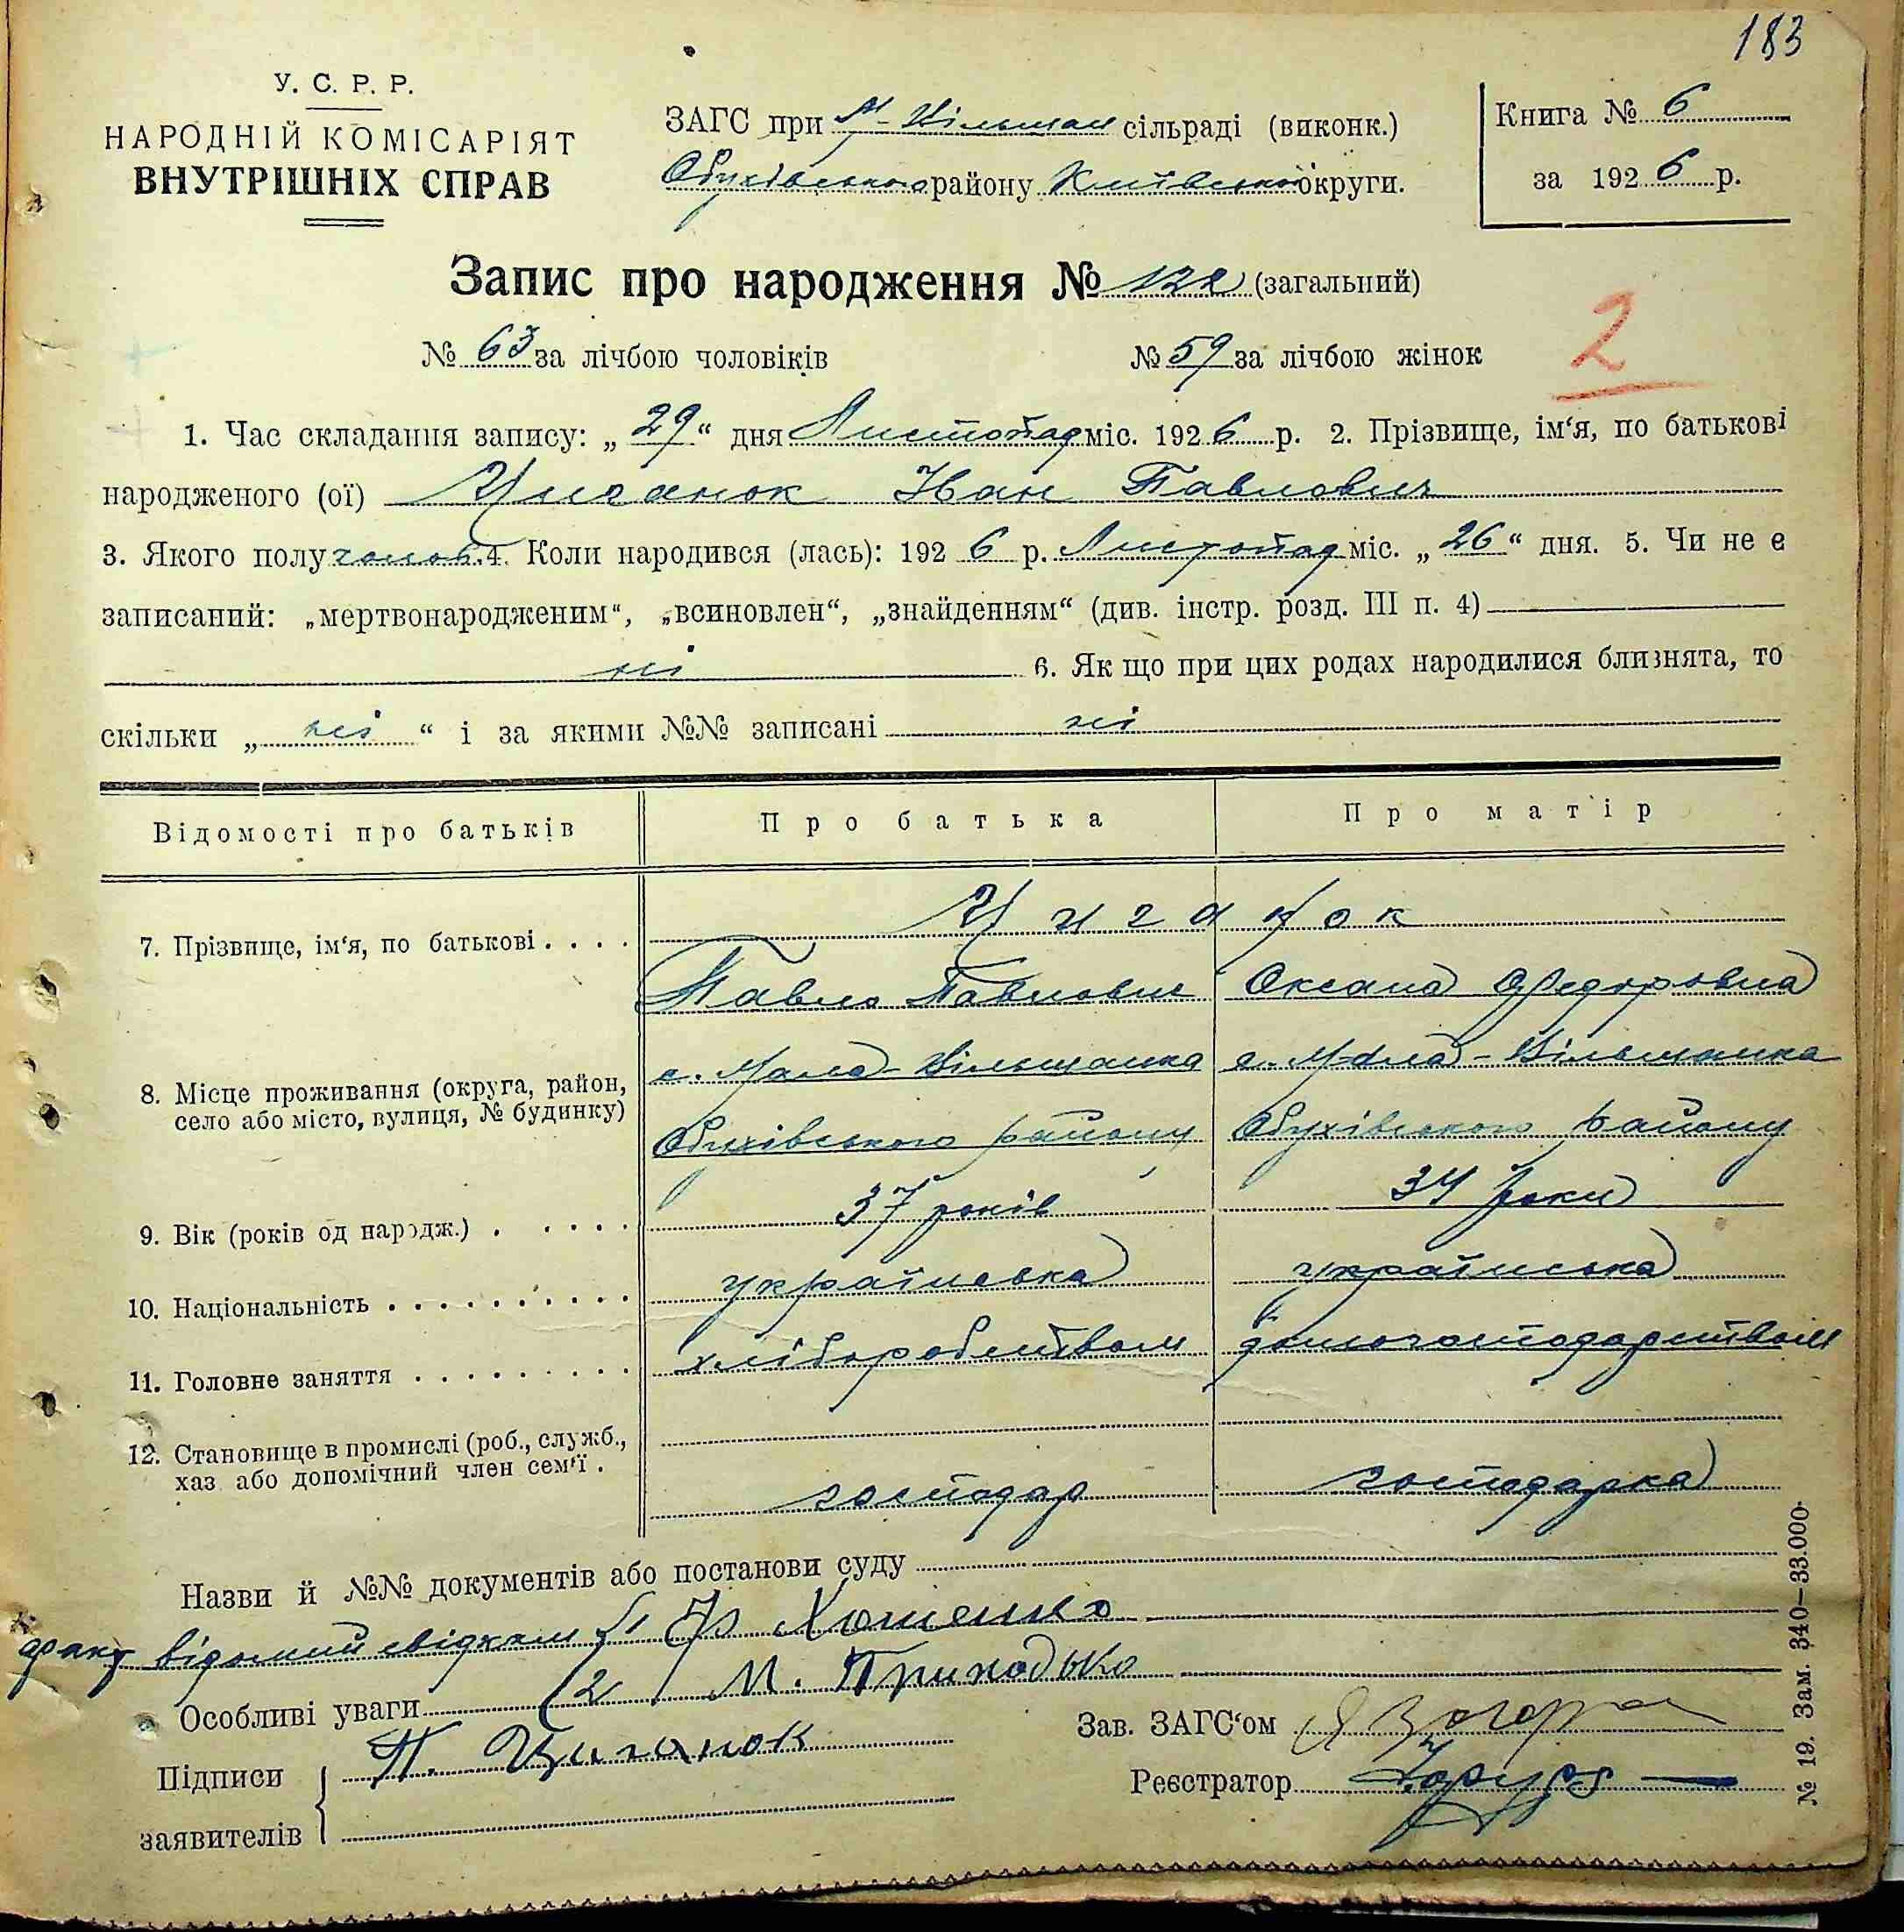 183
У. С. Р. Р.
НАРОДНІЙ КОМІСАРІЯТ
ВНУТРІШНІХ СПРАВ
ЗАГС при М-Вільшан сільраді (виконк.)
Обухівського району Київської округи.
Книга № 6
за 1926 р.
Запис про народження № 122 (загальний)
№ 63 за лічбою чоловіків № 59 за лічбою жінок
2
1. Час складання запису: „29“ дня Листопад міс. 1926 р. 2. Прізвище, ім‘я, по батькові
народженого (ої) Циганок Іван Павлович
3. Якого полу чолов. 4. Коли народився (лась): 1926 р. Листопад міс. „26“ дня. 5. Чи не є
записаний: „мертвонародженим“, „всиновлен“, „знайденням“ (див. інстр. розд. III п. 4)
ні 6. Як що при цих родах народилися близнята, то
скільки „ні“ і за якими №№ записані ні
Відомості про батьків Про батька Про матір
7. Прізвище, ім‘я, по батькові . . . . Циганок
Павло Павлович Оксана Федоровна
8. Місце проживання (округа, район, с. Мала-Вільшанка с. Мала-Вільшанка
село або місто, вулиця, № будинку) Обухівського району Обухівського району
9. Вік (років од народж.) . . . . . 37 років 34 роки
10. Національність . . . . . . . . . . українська українська
11. Головне заняття . . . . . . . . . хліборобством домогосподарством
12. Становище в промислі (роб., служб.,
хаз. або допомічний член сем‘ї . господар господарка
Назви й №№ документів або постанови суду
факт відомий свідкам 1 Хоменко
Особливі уваги 2 М. Приходько
Підписи П. Циганок
заявителів
Зав. ЗАГС‘ом
Реєстратор
№ 19. Зам. 340—33.000.